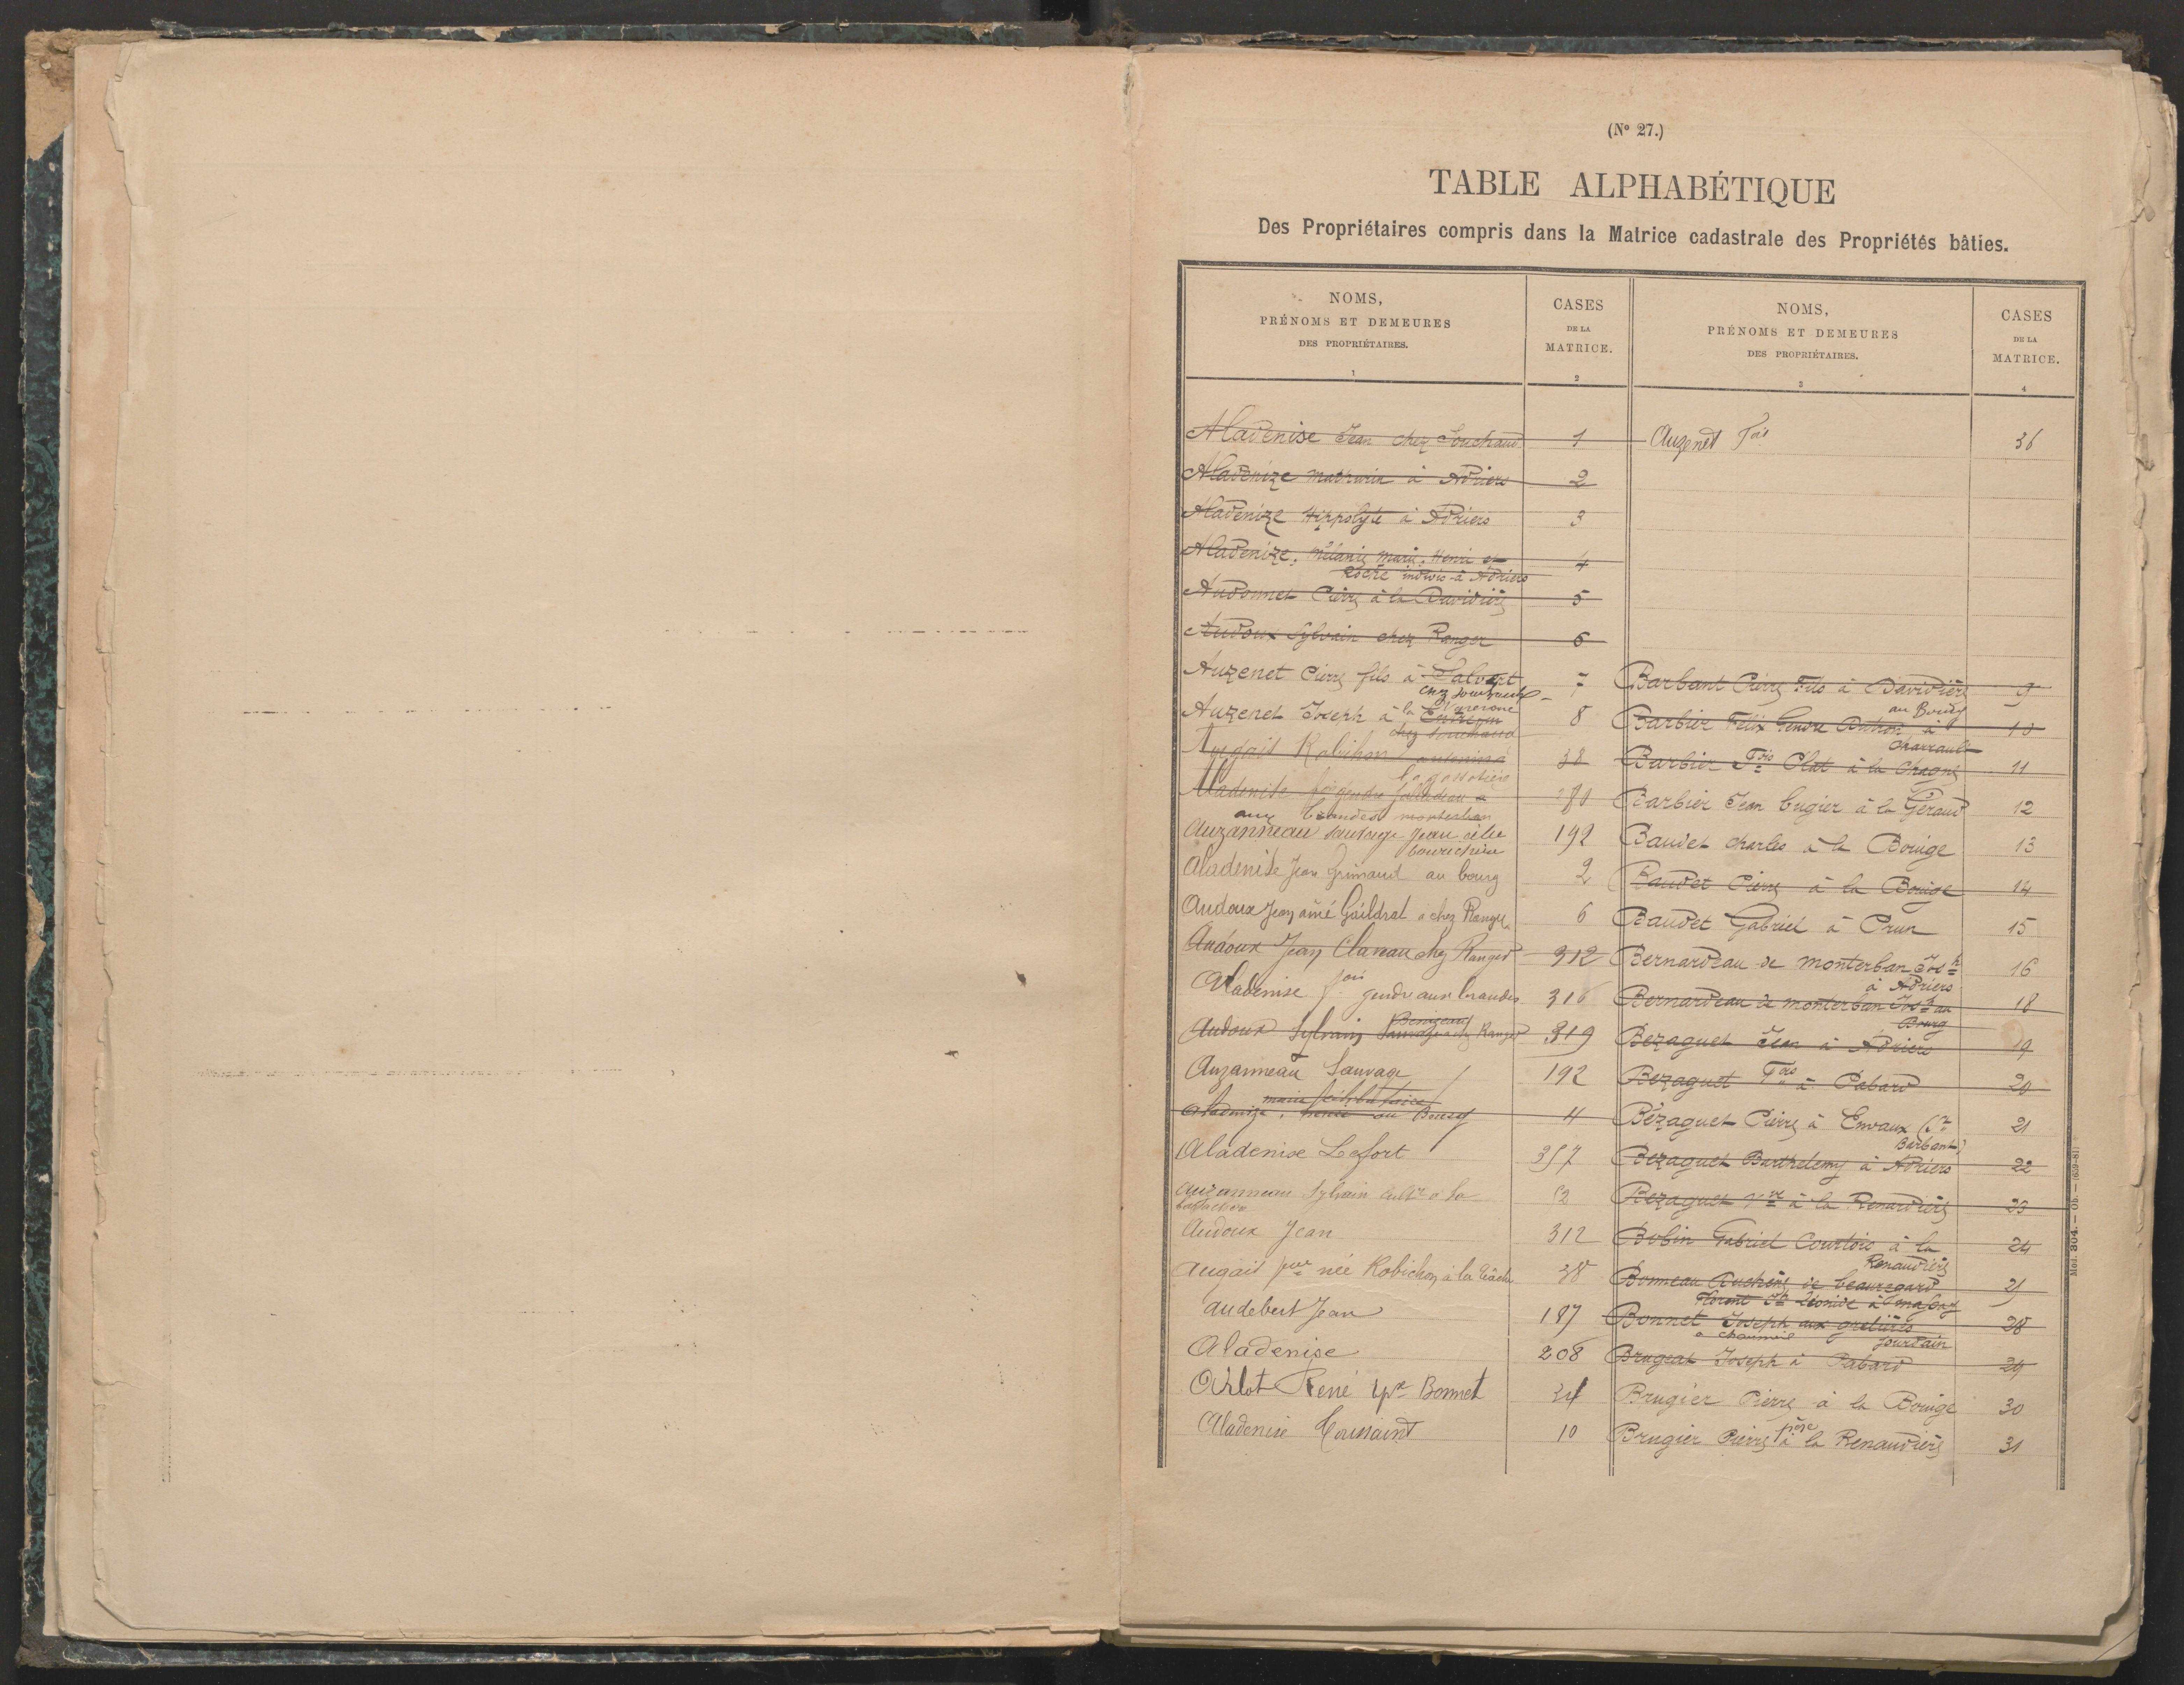 (Nº 27.)
TABLE ALPHABÉTIQUE
Des Propriétaires compris dans la Matrice cadastrale des Propriétés bâties.
NOMS,
PRÉNOMS ET DEMEURES
DES PROPRIÉTAIRES.
1
CASES
DE LA
MATRICE.
2
Aladenise Jean chez Souchaud 1
Aladenize Mathurin à Adriers 2
Aladenize Hippolyte à Adriers 3
Aladenize, Mélanie Marie, Henri et 4
Roche indivis à Adriers
Audonnet Pierre à la Davidière 5
Audoux Sylvain chez Ranger 6
Auzenet Pierre fils à Calvart 7
chez Souchaud
Auzenet Joseph à la 8
chez Souchaud
Robichon 38
la
Aladenise gendre
aux Brandes
Auzanneau Sauvage Jean 192
Aladenise Jean Grimaud au bourg 2
Audoux Jean aîné Gaildrat à chez Ranger 6
Audoux Jean Claveau chez Ranger 312
Aladenise fois gendre aux brandes 316
Audoux Sylvain Sauvage chez Ranger 319
Auzanneau Sauvage 192
Marie
Aladenize, au Bourg 4
Aladenise Lefort 357
Auzanneau Sylvain cultr à la 52
Audoux Jean 312
Augait née Robichon à la 38
Audebert Jean 187
Aladenise 208
Arlot René Bonnet
Aladenise Toussaint 10
NOMS,
PRÉNOMS ET DEMEURES
DES PROPRIÉTAIRES.
3
CASES
DE LA
MATRICE.
4
Auzenet Fois 36
Barbant Pierre Fils à Davidière 9
au Bourg
Barbier Félix Gendre à 10
Charrault
Barbier Fois Plat à la Chagne 11
Barbier Jean Cugier à la Géraud 12
Baudet Charles à la Bouige 13
Baudet Pierre à la Bouige 14
Baudet Gabriel à Prun 15
Bernardeau de Monterban Josh 16
à Adriers
Bernardeau de Monterban Josh au 18
Bourg
Bezaguet Jean à Adriers 19
Bezaguet Fois à Pabard 20
Bézaguet Pierre à Envaux 21
Barbant)
Bezaguet Barthelemy à Adriers 22
Bezaguet Vve à la Renaudière 23
Bobin Gabriel Courtois à la 24
Renaudière
Bonneau de beauregard
Florent
Bonnet Joseph aux 28
Jourdain
Brugeat Joseph à Pabard 29
Brugier Pierre à la Bouige 30
Brugier Pierre père à la Renaudière 31
Mod. 304.